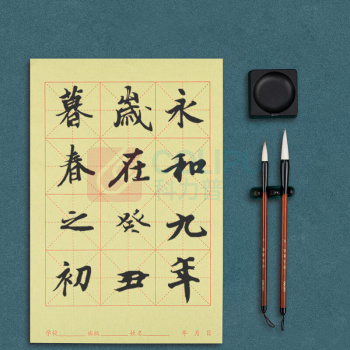 永和九年
歲在癸丑
暮春之初
学校 班级 姓名 年 月 日
科力普